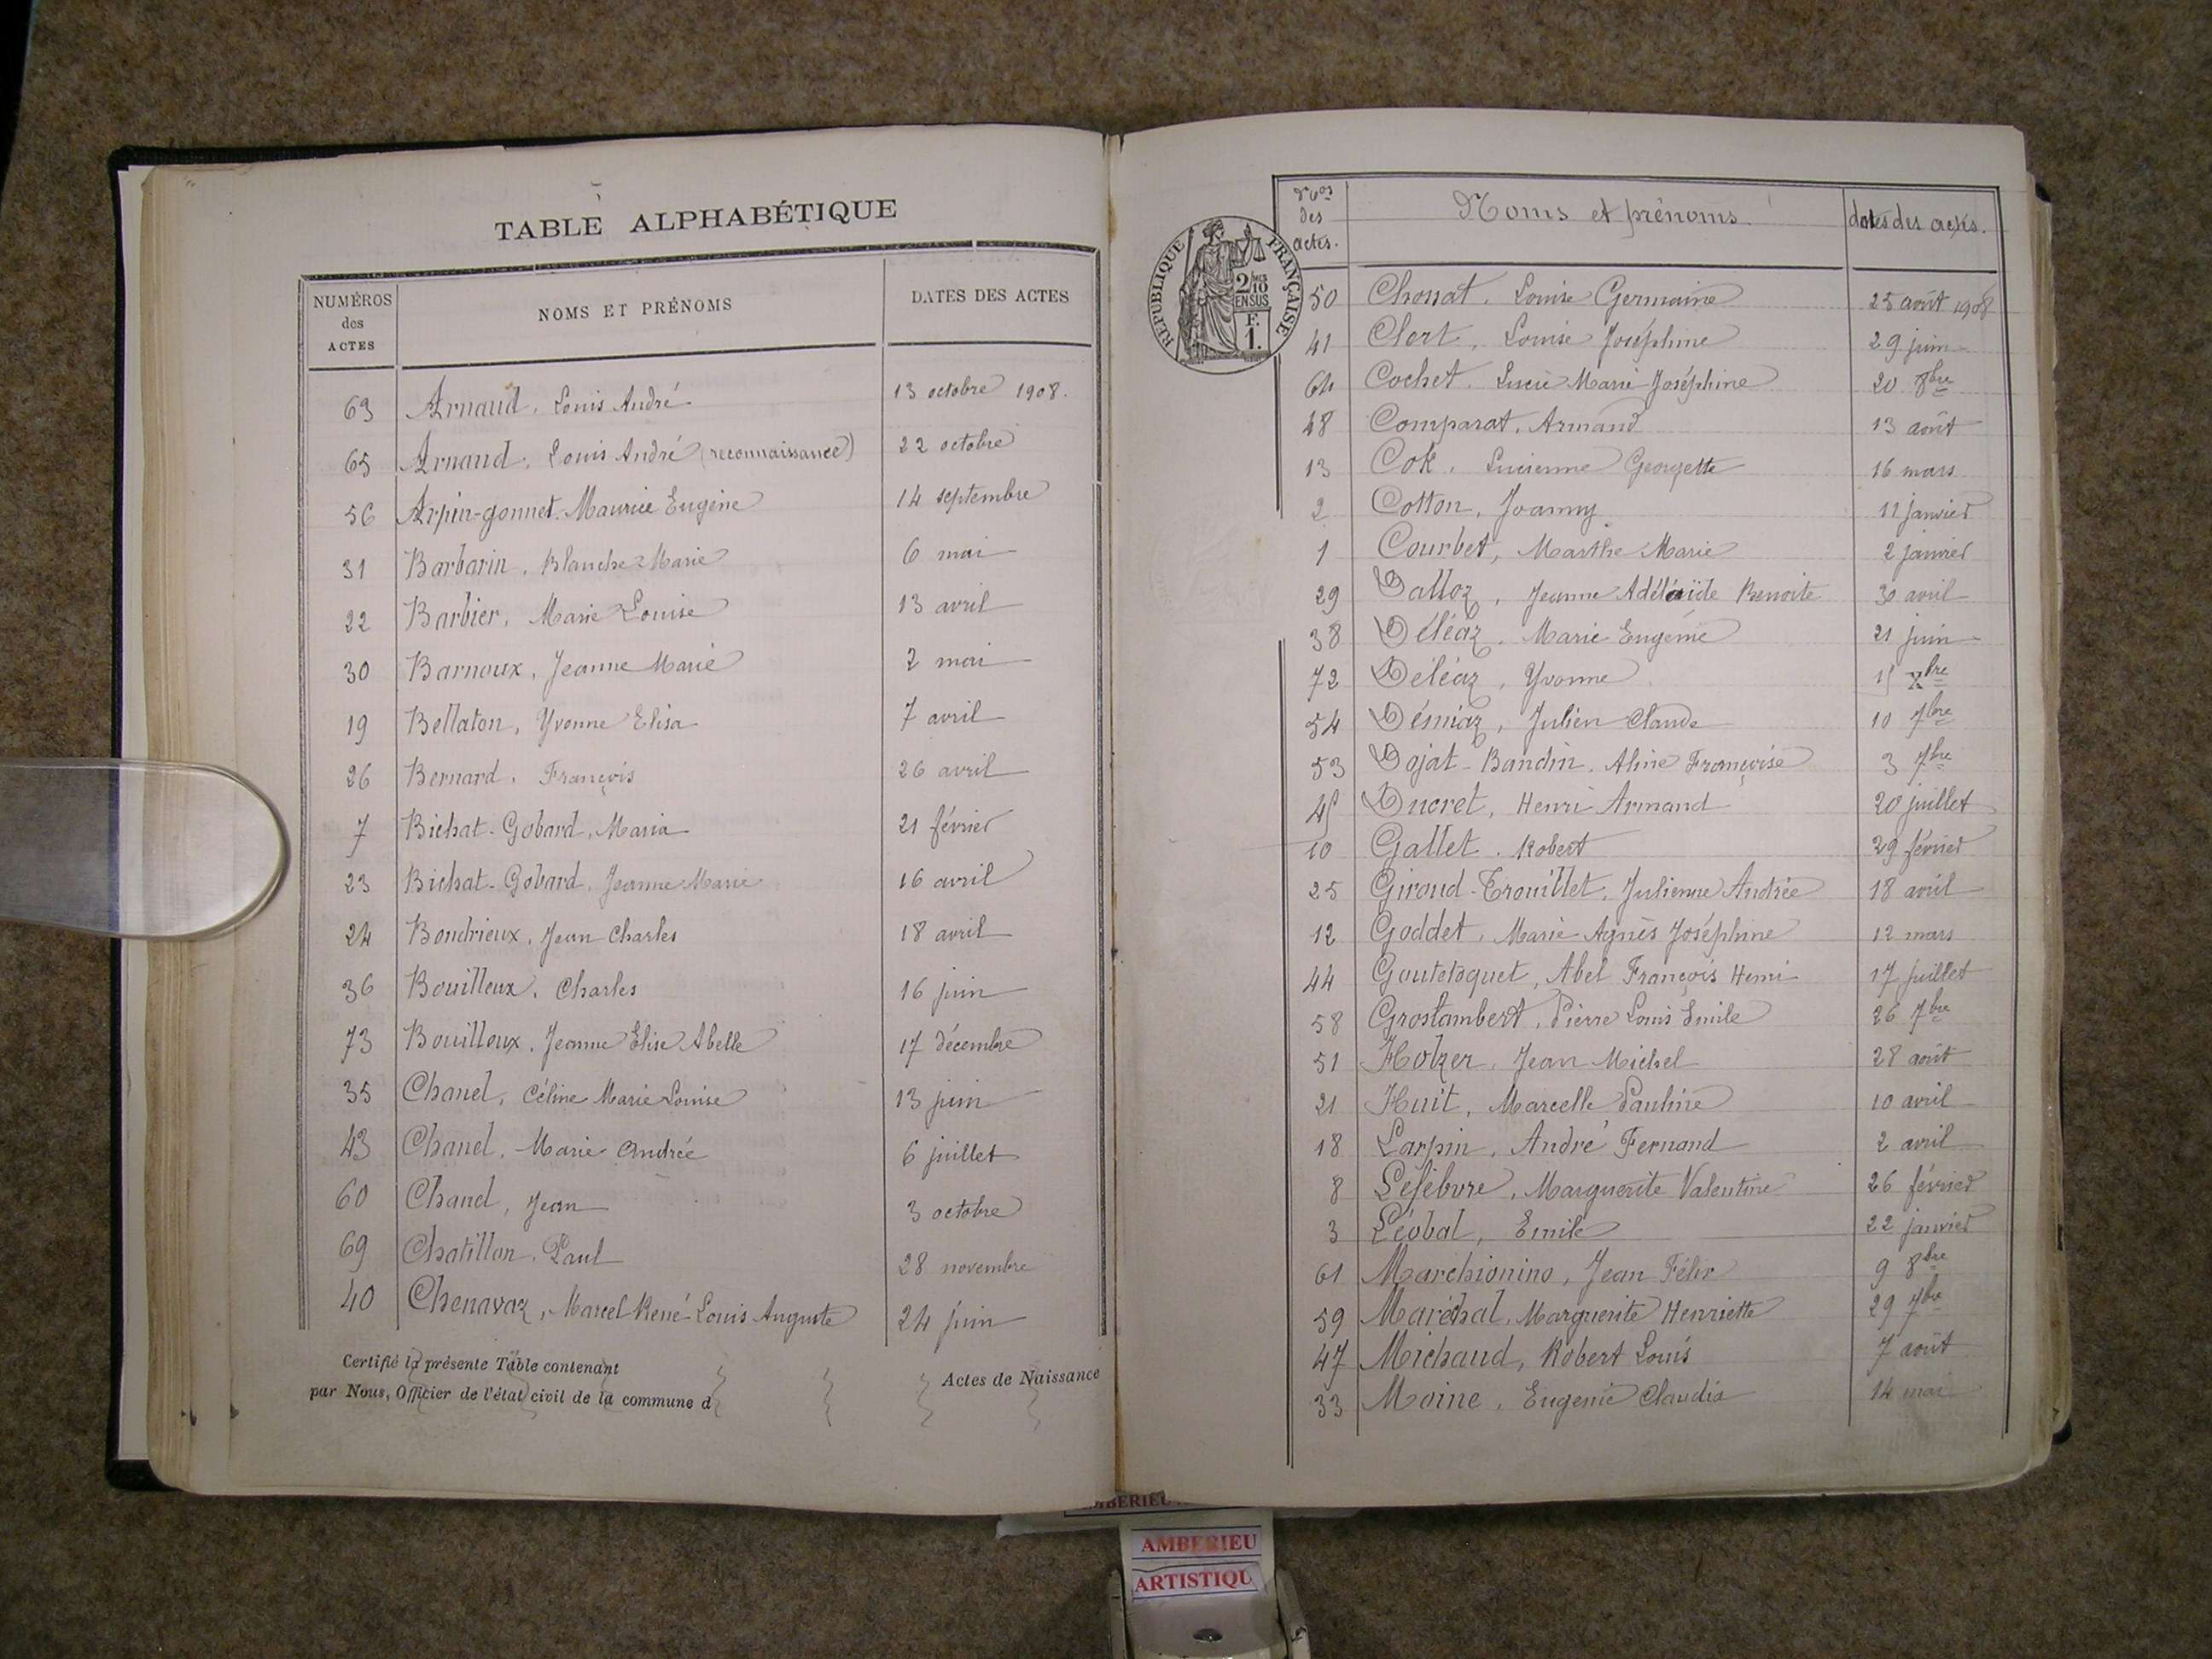 TABLE ALPHABÉTIQUE
NUMÉROS des ACTES NOMS ET PRÉNOMS DATES DES ACTES
63 Arnaud, Louis André 13 octobre 1908.
65 Arnaud, Louis André (reconnaissance) 22 octobre
56 Arpin-gonnet, Maurice Eugène 14 septembre
31 Barbarin, Blanche Marie 6 mai
22 Barbier, Marie Louise 13 avril
30 Barnoux, Jeanne Marie 2 mai
19 Bellaton, Yvonne Elisa 7 avril
26 Bernard, François 26 avril
7 Bichat-Gobard, Maria 21 février
23 Bichat-Gobard, Jeanne Marie 16 avril
24 Bondrieux, Jean Charles 18 avril
36 Bouilloux, Charles 16 juin
73 Bouilloux, Jeanne Elise Abelle 17 décembre
35 Chanel, Céline Marie Louise 13 juin
43 Chanel, Marie Andrée 6 juillet
60 Chanel, Jean 3 octobre
69 Chatillon, Paul 28 novembre
40 Chenavaz, Marcel René Louis Auguste 24 juin
Certifié la présente Table contenant Actes de Naissance
par Nous, Officier de l'état civil de la commune d
Nos des actes. Noms et prénoms. dates des actes.
RÉPUBLIQUE FRANÇAISE
2/10 EN SUS
F. 1.
50 Chossat, Louise Germaine 25 août 1908
41 Clert, Louise Joséphine 29 juin
64 Cochet, Lucie Marie Joséphine 20 8bre
48 Comparat, Armand 13 août
13 Cok, Lucienne Georgette 16 mars
2 Cotton, Joanny 11 janvier
1 Courbet, Marthe Marie 2 janvier
29 Dalloz, Jeanne Adélaïde Benoite 30 avril
38 Déléaz, Marie Eugénie 21 juin
72 Déléaz, Yvonne 15 Xbre
54 Démiaz, Julien Claude 10 7bre
53 Dojat-Bandin, Aline Françoise 3 7bre
45 Ducret, Henri Armand 20 juillet
10 Gallet, Robert 29 février
25 Giroud-Trouillet, Julienne Andrée 18 avril
12 Goddet, Marie Agnès Joséphine 12 mars
44 Goutetoquet, Abel François Henri 17 juillet
58 Groslambert, Pierre Louis Emile 26 7bre
51 Holzer, Jean Michel 28 août
21 Huit, Marcelle Pauline 10 avril
18 Larpin, André Fernand 2 avril
8 Lefebvre, Marguerite Valentine 26 février
3 Léobal, Emile 22 janvier
61 Marchionino, Jean Félix 9 8bre
59 Maréchal, Marguerite Henriette 29 7bre
47 Michaud, Robert Louis 7 août
33 Moine, Eugénie Claudia 14 mai
AMBERIEU
ARTISTIQU